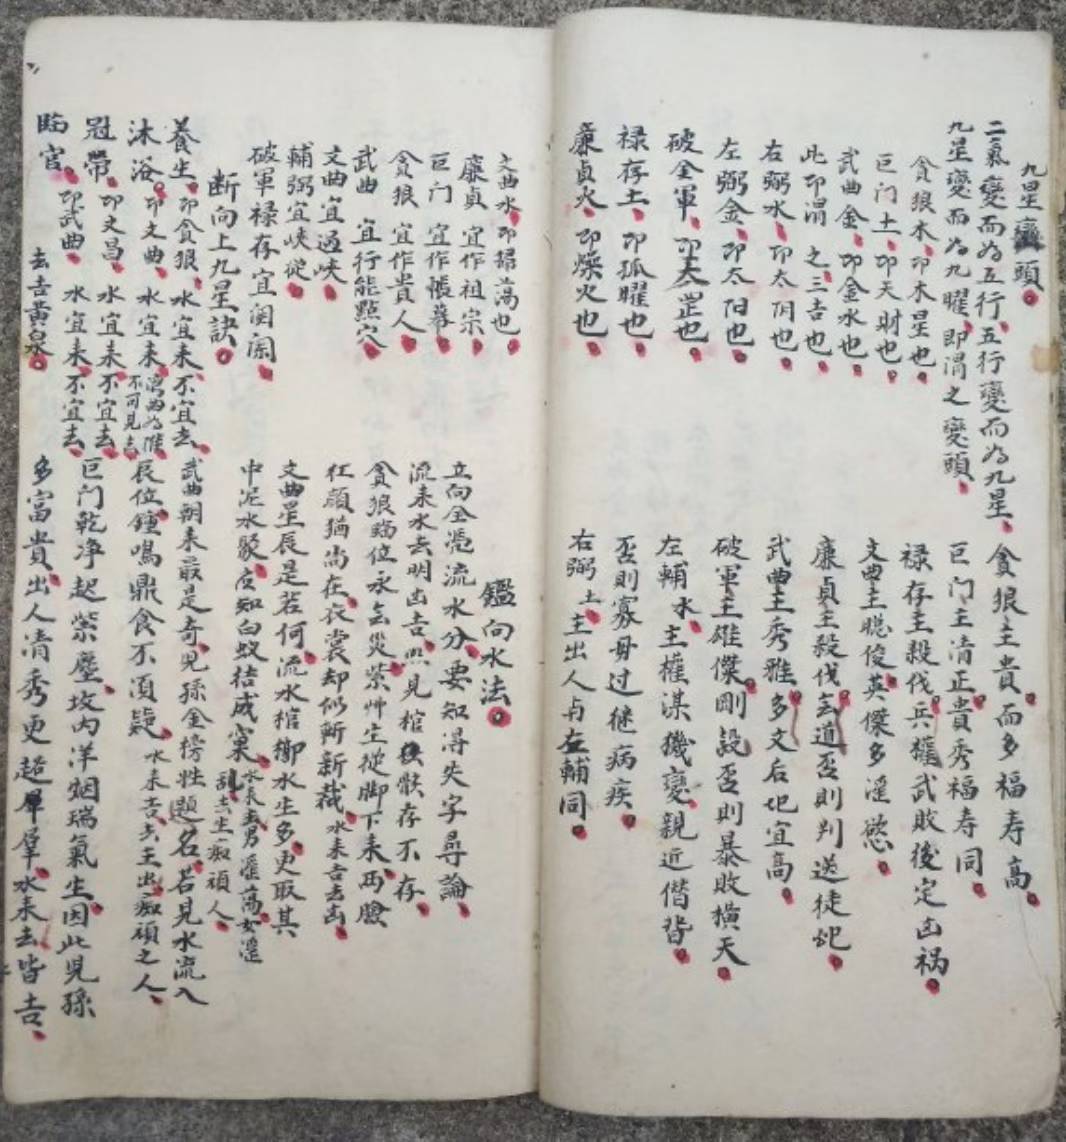 九星變頭
二氣變而為五行、五行變而為九星、
九星變而為九曜、即謂之變頭、
貪狼木、卬木星也、
巨门土、卬天財也、
武曲金、卬金水也、
此卬謂之三吉也、
右弼水、卬太阴也、
左弼金、卬太阳也、
破全軍、卬天罡也、
禄存土、卬孤曜也、
廉貞火、卬燥火也、
貪狼主貴而多福寿高
巨门主清正貴秀福寿同
禄存主殺伐兵權武敗後定凶禍
文曲主聪俊英傑多淫慾
廉貞主殺伐玄道否則判送徒
武曲主秀雅多文后妃宜高
破軍主雄傑剛毅否則暴敗橫天
左輔水主權謀機變親近偕皆
否則寡母过继病疾
右弼土主出人与左輔同
文曲水、卬掃蕩也、
廉貞宜作祖宗、
巨门宜作帳幕、
貪狼宜作貴人、
武曲宜行龍點穴、
文曲宜過峡、
輔弼宜峡從、
破軍禄存宜関闌、
断向上九星訣
養生、卬貪狼、水宜来、不宜去、
沐浴、卬文曲、水宜来、
不可見去
冠帶、卬文昌、水宜来、不宜去、
臨官、卬武曲、水宜来、不宜去、
去吉黃泉、
鑑向水法
立向全憑流水分、要知得失字尋論、
流来水去明凶吉、照見棺骸存不存、
貪狼臨位永無災、紫艸生從脚下来、两臉
红顔猶尚在、衣裳却似斩新裁、水来吉去凶、
文曲星辰是若何、流水棺御水生多、更取其
中泥水聚、应知白蚁结成窠、水来去男淫荡女淫
亂去生痴頑人、
武曲朝来最是奇、児孫金榜姓題名、若見水流入
辰位、鍾鳴鼎食不須疑、水来吉去主出痴頑之人、
巨门乾净起紫塵、坟内洋烟瑞氣生、因此児孫
多富貴、出人清秀更超羣、水来去皆吉、